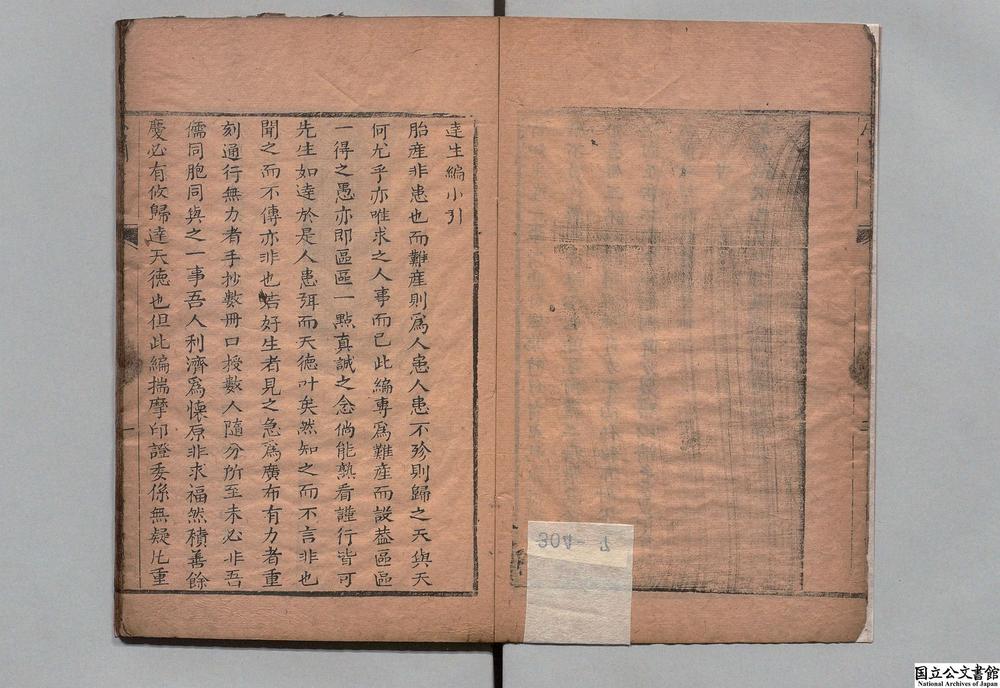 達生編小引
胎産非患也而難産則爲人患人患不殄則歸之天與天
何尤乎亦唯求之人事而已此編專爲難産而設葢區區
一得之愚亦即區區一點真誠之念倘能熟看謹行皆可
先生如達於是人患弭而天德叶矣然知之而不言非也
聞之而不傳亦非也若好生者見之急爲廣布有力者重
刻通行無力者手抄數冊口授數人隨分所至未必非吾
儒同胞同與之一事吾人利濟爲懷原非求福然積善餘
慶必有攸歸達天德也但此編揣摩印證委係無疑凢重
304-7
国立公文書館
National Archives of Japan